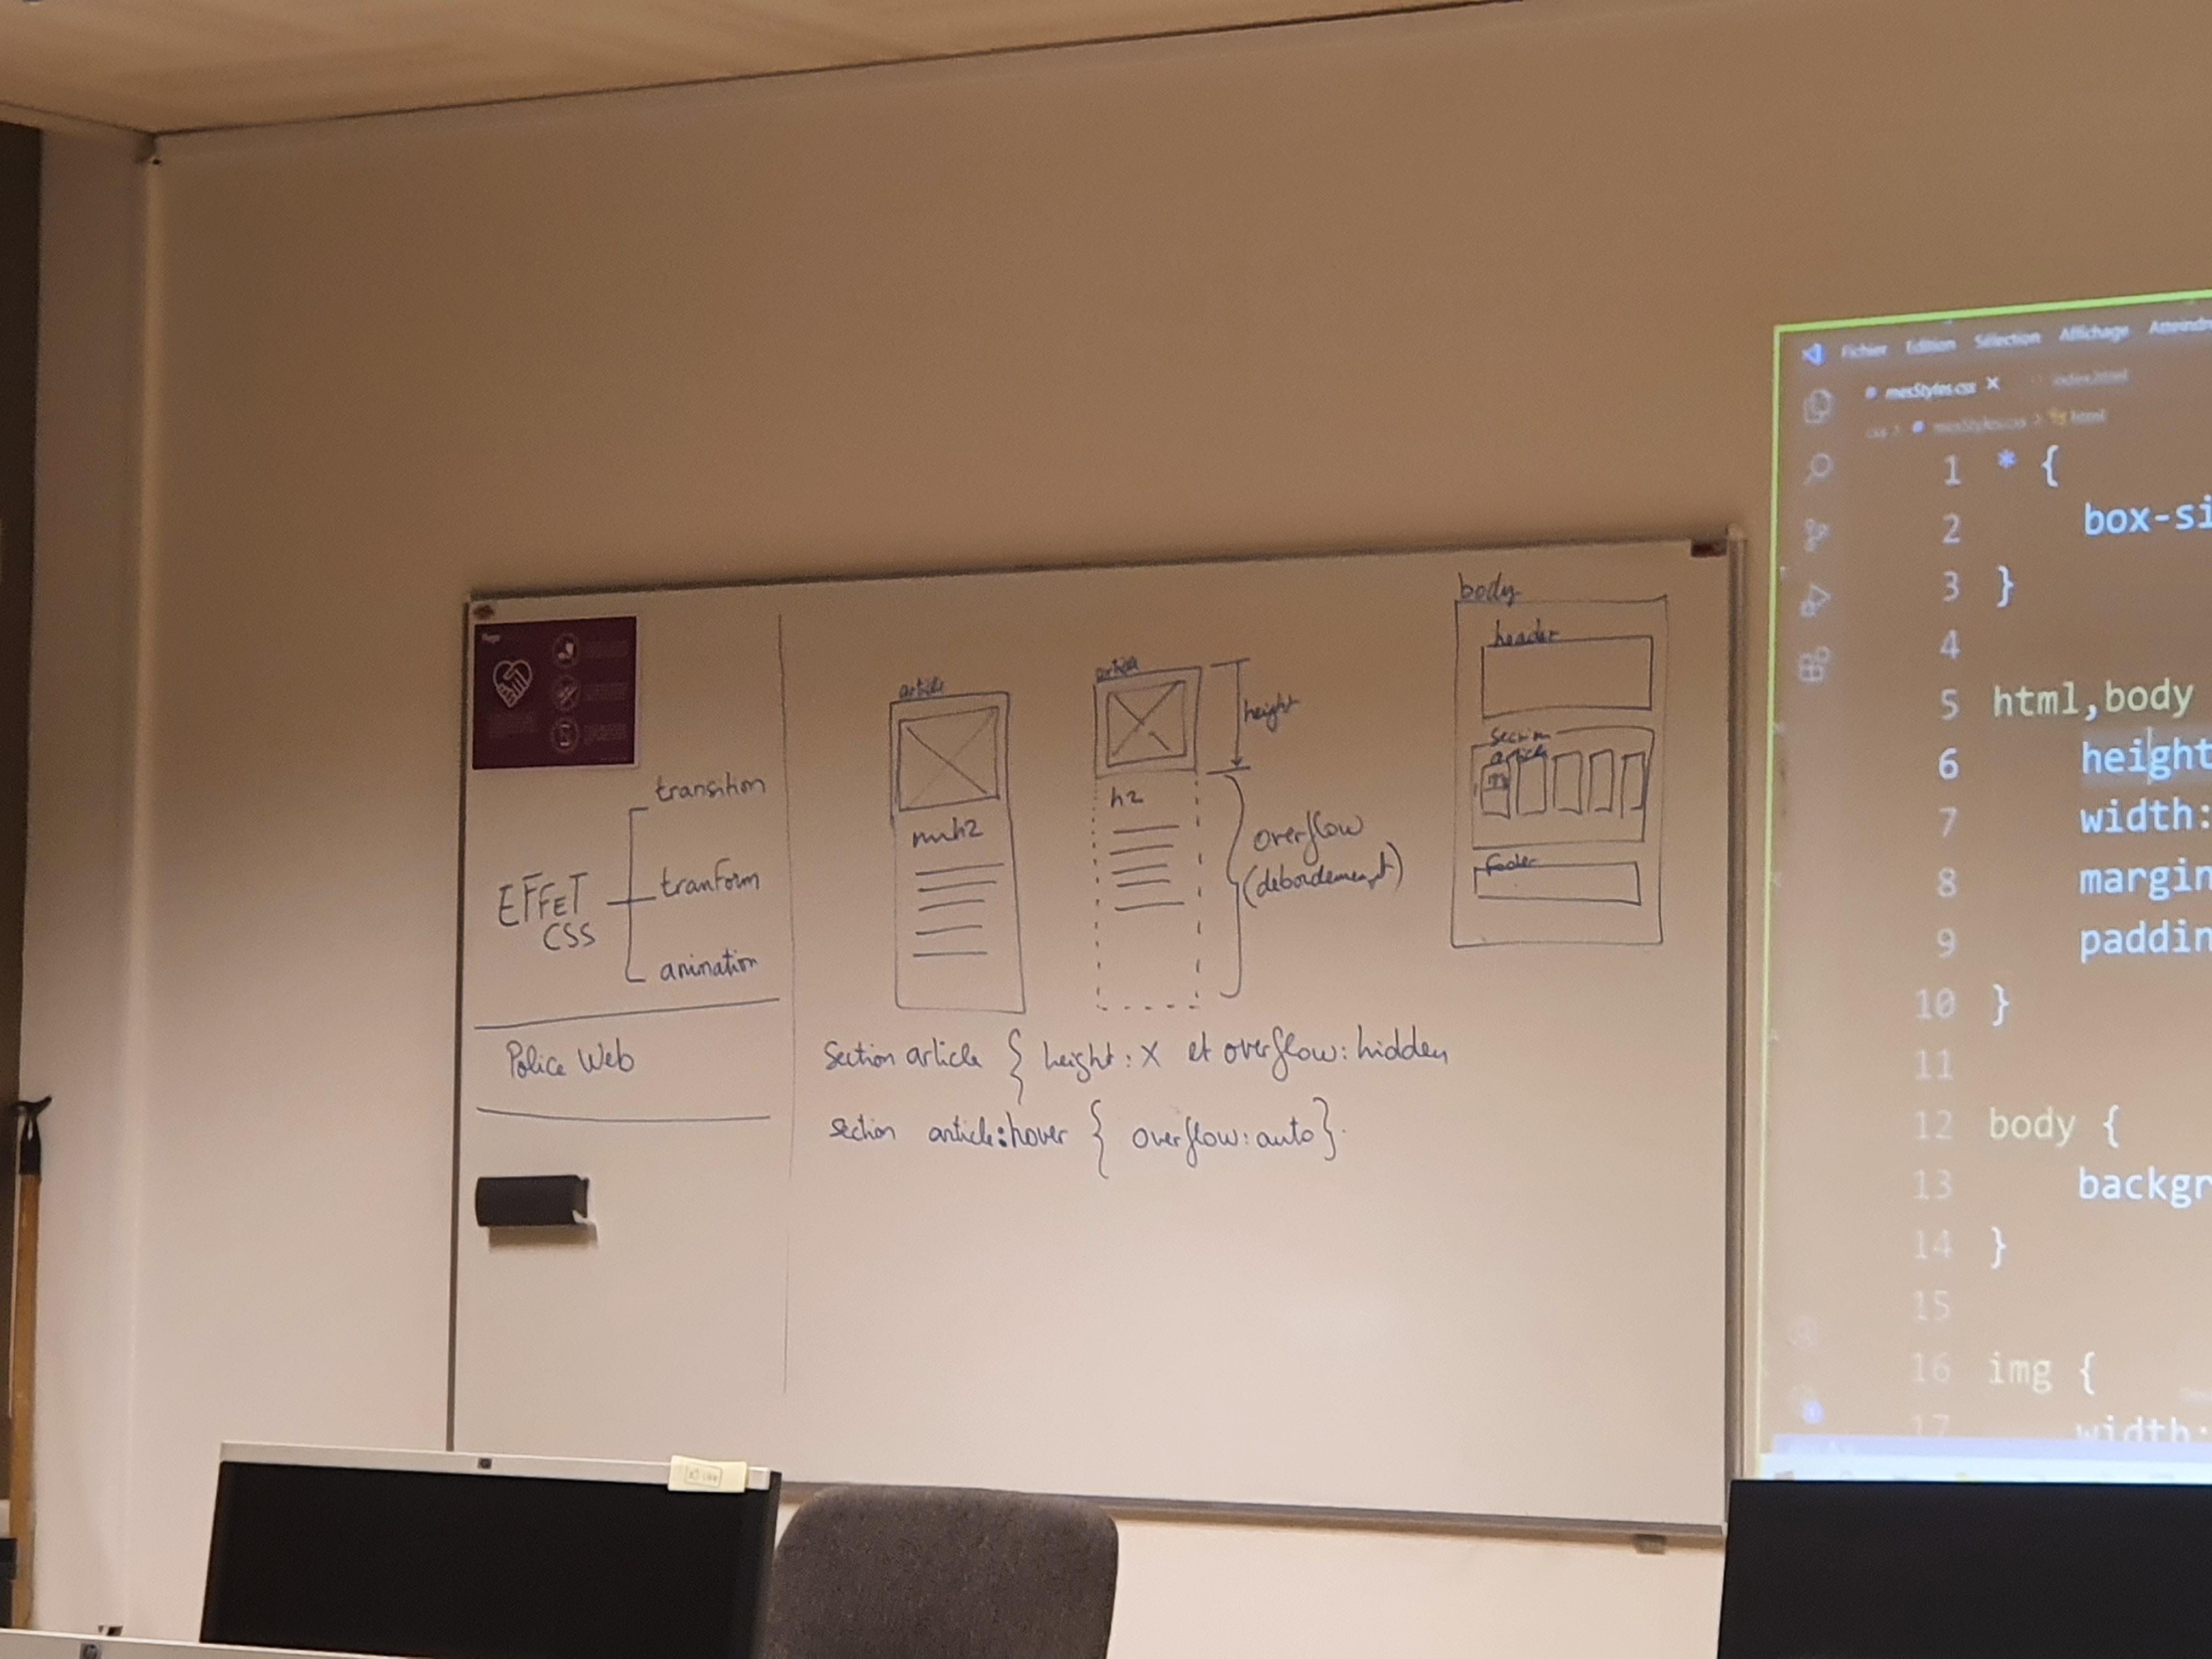 transition
EFFET
CSS
tranform
animation
Police Web
article
h2
article
height
h2
overflow
(debordement)
body
header
section
article
footer
section article { height: X et overflow: hidden
section article:hover { overflow: auto }.
Fichier Edition Sélection Affichage
mesStyles.css × index.html
css > mesStyles.css > html
1 * {
2 box-si
3 }
4
5 html,body
6 height
7 width:
8 margin
9 paddin
10 }
11
12 body {
13 backgr
14 }
15
16 img {
17 width: